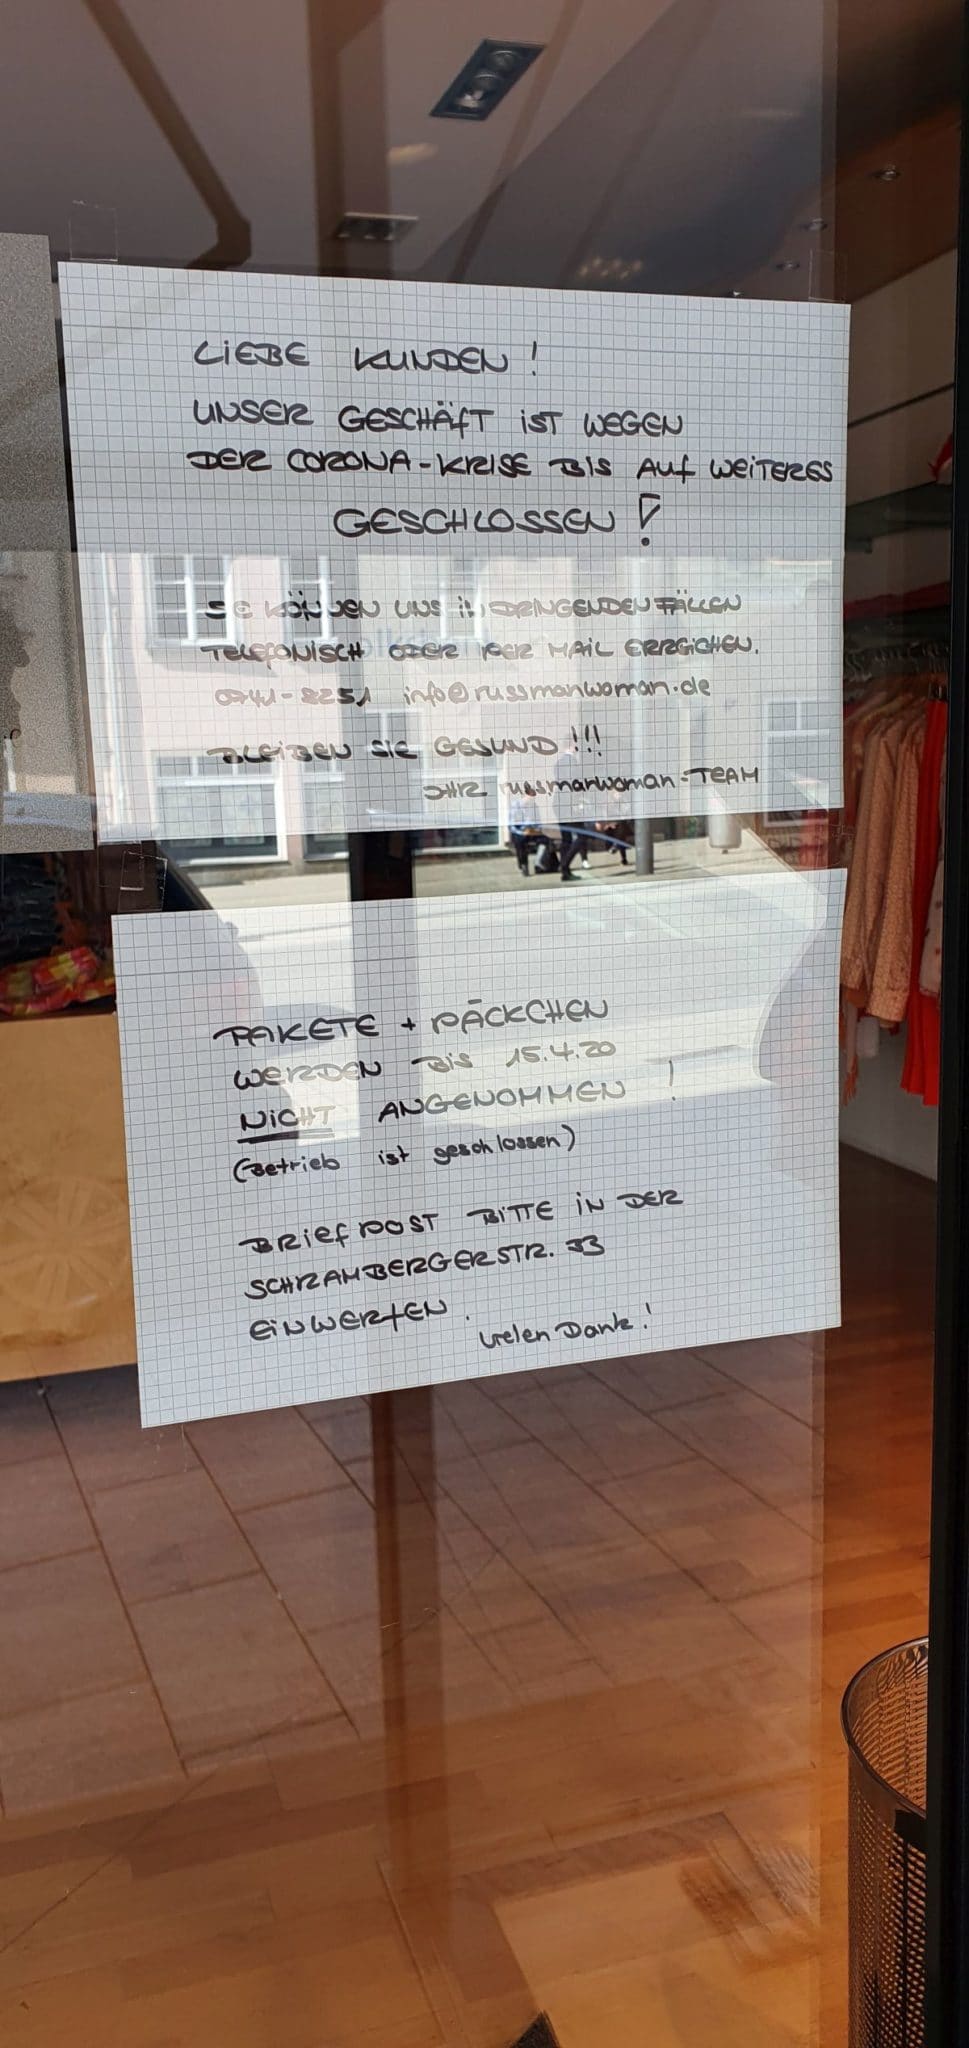 LIEBE KUNDEN!
UNSER GESCHÄFT IST WEGEN
DER CORONA-KRISE BIS AUF WEITERES
GESCHLOSSEN!
SIE KÖNNEN UNS IN DRINGENDEN FÄLLEN
TELEFONISCH ODER PER MAIL ERREICHEN.
0741-8251 info@russmanwoman.de
BLEIBEN SIE GESUND!!!
IHR russmanwoman-TEAM
PAKETE + PÄCKCHEN
WERDEN BIS 15.4.20
NICHT ANGENOMMEN!
(Betrieb ist geschlossen)
BRIEFPOST BITTE IN DER
SCHRAMBERGERSTR. 33
EINWERFEN.
Vielen Dank!